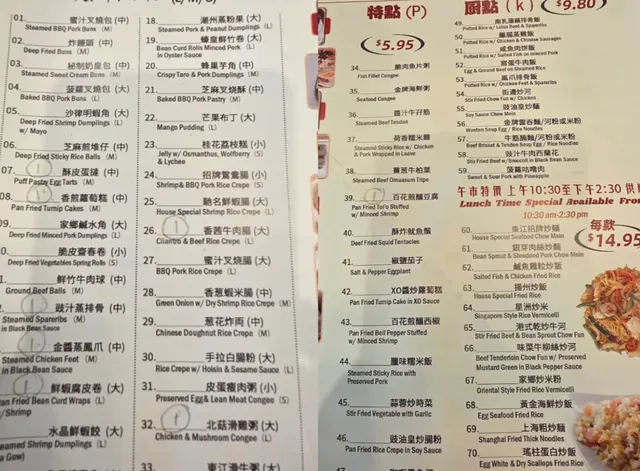 01. 蜜汁叉燒包 (中)
Steamed BBQ Pork Buns (M)
02. 炸饅頭 (中)
Deep Fried Buns (M)
03. 秘制奶皇包 (中)
Steamed Sweet Cream Buns (M)
04. 菠蘿叉燒包 (大)
Baked BBQ Pork Buns (L)
05. 沙律明蝦角 (大)
Deep Fried Shrimp Dumplings (L)
w/ Mayo
06. 芝麻煎堆仔 (中)
Deep Fried Sticky Rice Balls (M)
07. 1 酥皮蛋撻 (中)
Puff Pastry Egg Tarts (M)
08. 1 香煎蘿蔔糕 (中)
Pan Fried Turnip Cakes (M)
09. 家鄉鹹水角 (大)
Deep Fried Minced Pork Dumplings (L)
脆皮齋春卷 (小)
Deep Fried Vegetables Spring Rolls (S)
鮮竹牛肉球 (中)
Ground Beef Balls (M)
1 豉汁蒸排骨 (中)
Steamed Spareribs (M)
in Black Bean Sauce
1 金醬蒸鳳爪 (中)
Steamed Chicken Feet (M)
in Black Bean Sauce
1 鮮蝦腐皮卷 (大)
Pan Fried Bean Curd Wraps (L)
w/Shrimp
水晶鮮蝦餃 (大)
Steamed Shrimp Dumplings (L)
18. 潮州蒸粉果 (大)
Steamed Pork & Peanut Dumplings (L)
19. 蠔皇鮮竹卷 (大)
Bean Curd Rolls Minced Pork (L)
in Oyster Sauce
20. 蜂巢芋角 (中)
Crispy Taro & Pork Dumplings (M)
21. 芝麻叉燒酥 (中)
Baked BBQ Pork Pastry (M)
22. 芒果布丁 (大)
Mango Pudding (L)
23. 桂花荔枝糕 (小)
Jelly w/ Osmanthus, Wolfberry (S)
& Lychee
24. 招牌鴛鴦腸 (小)
Shrimp& BBQ Pork Rice Crepe (S)
25. 馳名鮮蝦腸 (大)
House Special Shrimp Rice Crepe (L)
26. 1 香茜牛肉腸 (大)
Cilantro & Beef Rice Crepe (L)
27. 蜜汁叉燒腸 (大)
BBQ Pork Rice Crepe (L)
28. 香蔥蝦米腸 (中)
Green Onion w/ Dry Shrimp Rice Crepe (M)
29. 蔥花炸雨 (中)
Chinese Doughnut Rice Crepe (M)
30. 手拉白腸粉 (大)
Rice Crepe w/ Hoisin & Sesame Sauce (L)
31. 皮蛋瘦肉粥 (小)
Preserved Egg & Lean Meat Congee (S)
32. 1 北菇滑雞粥 (大)
Chicken & Mushroom Congee (L)
33. 東江滑牛粥 (大)
特點 (P)
$5.95
34. 脆肉魚片粥
Fish Fillet Congee
35. 金牌海鮮粥
Seafood Congee
36. 醬汁牛孖筋
Steamed Beef Tendon
37. 荷香糯米雞
Steamed Sticky Rice w/ Chicken
& Pork Wrapped in Leave
38. 薑蔥牛柏葉
Steamed Beef Omassum Tripe
39. 1 百花煎釀豆腐
Pan Fried ToFu Stuffed
w/ Minced Shrimp
40. 酥炸魷魚鬚
Deep Fried Squid Tentacles
41. 椒鹽茄子
Salt & Pepper Eggplant
42. XO醬炒蘿蔔糕
Pan Fried Turnip Cake in XO Sauce
43. 百花煎釀西椒
Pan Fried Bell Pepper Stuffed
w/ Minced Shrimp
44. 臘味糯米飯
Steamed Sticky Rice with
Preserved Pork
45. 蒜蓉炒時菜
Stir Fried Vegetable with Garlic
46. 豉油皇炒腸粉
Pan Fried Rice Crepe in Soy Sauce
廚點 (k)
$9.80
49. 南乳蓮藕排骨飯
50. 臘腸蒸雞飯
Potted Rice w/ Chicken & Chinese Sausages
51. 咸魚肉餅飯
Potted Rice w/ Salted Fish on minced Pork
52. 窩蛋牛肉飯
Egg & Ground Beef on Steamed Rice
53. 鳳爪排骨飯
54. 街邊炒河
55. 豉油皇炒麵
Soy Sauce Chow Mein
56. 金牌雲吞麵/河粉或米粉
Wonton Soup Egg / Rice Noodles
57. 牛筋腩麵/河粉或米粉
Beef Brisket & Tendon Soup Egg / Rice Noodles
58. 豉汁牛肉西蘭花
Stir Fried Beef w/Broccoli in Black Bean Sauce
59. 菠蘿咕嚕肉
Sweet & Sour Pork with Pineapple
午市特價 上午10:30至下午2:30 供
Lunch Time Special Available From
10:30 am-2:30 pm
每款
$14.95
60. 東江招牌炒麵
House Special Seafood Chow Mein
61. 銀芽肉絲炒麵
Bean Sprout & Shredded Pork Chow Mein
62. 鹹魚雞粒炒飯
Salted Fish & Chicken Fried Rice
63. 揚州炒飯
House Special Fried Rice
64. 星洲炒米
Singapore Style Rice Vermicelli
65. 港式乾炒牛河
Stir Fried Beef & Bean Sprout Chow Fun
66. 味菜牛柳絲炒河
Beef Tenderloin Chow Fun w/ Preserved
Mustard Green in Black Bean Sauce
67. 家鄉炒米粉
Oriental Style Fried Rice Vermicelli
68. 黃金海鮮炒飯
Egg Seafood Fried Rice
69. 上海粗炒麵
Shanghai Fried Thick Noodles
70. 瑤柱蛋白炒飯
Egg White & Dry Scallops Fried Rice